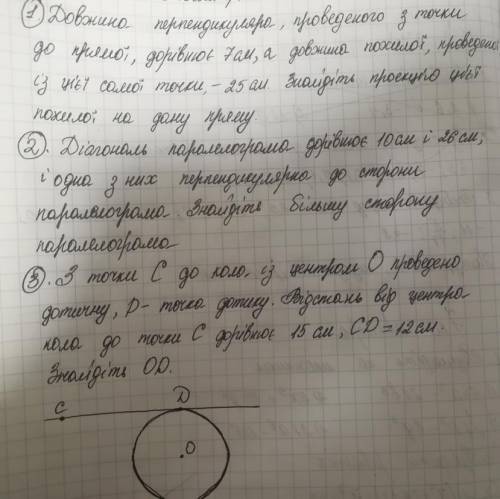 ① Довжина перпендикуляра, проведеного з точки
до прямої, дорівнює 7 см, а довжина похилої, проведено
із цієї самої точки, – 25 см. Знайдіть проекцію цієї
похилої на дану пряму.
② . Діагональ паралелограма дорівнює 10 см і 26 см,
і одна з них перпендикулярна до сторони
паралелограма. Знайдіть більшу сторону
паралелограма
③ . З точки С до кола із центром О проведено
дотичну, D – точка дотику. Відстань від центра
кола до точки С дорівнює 15 см, CD = 12 см.
Знайдіть OD.
C D
O